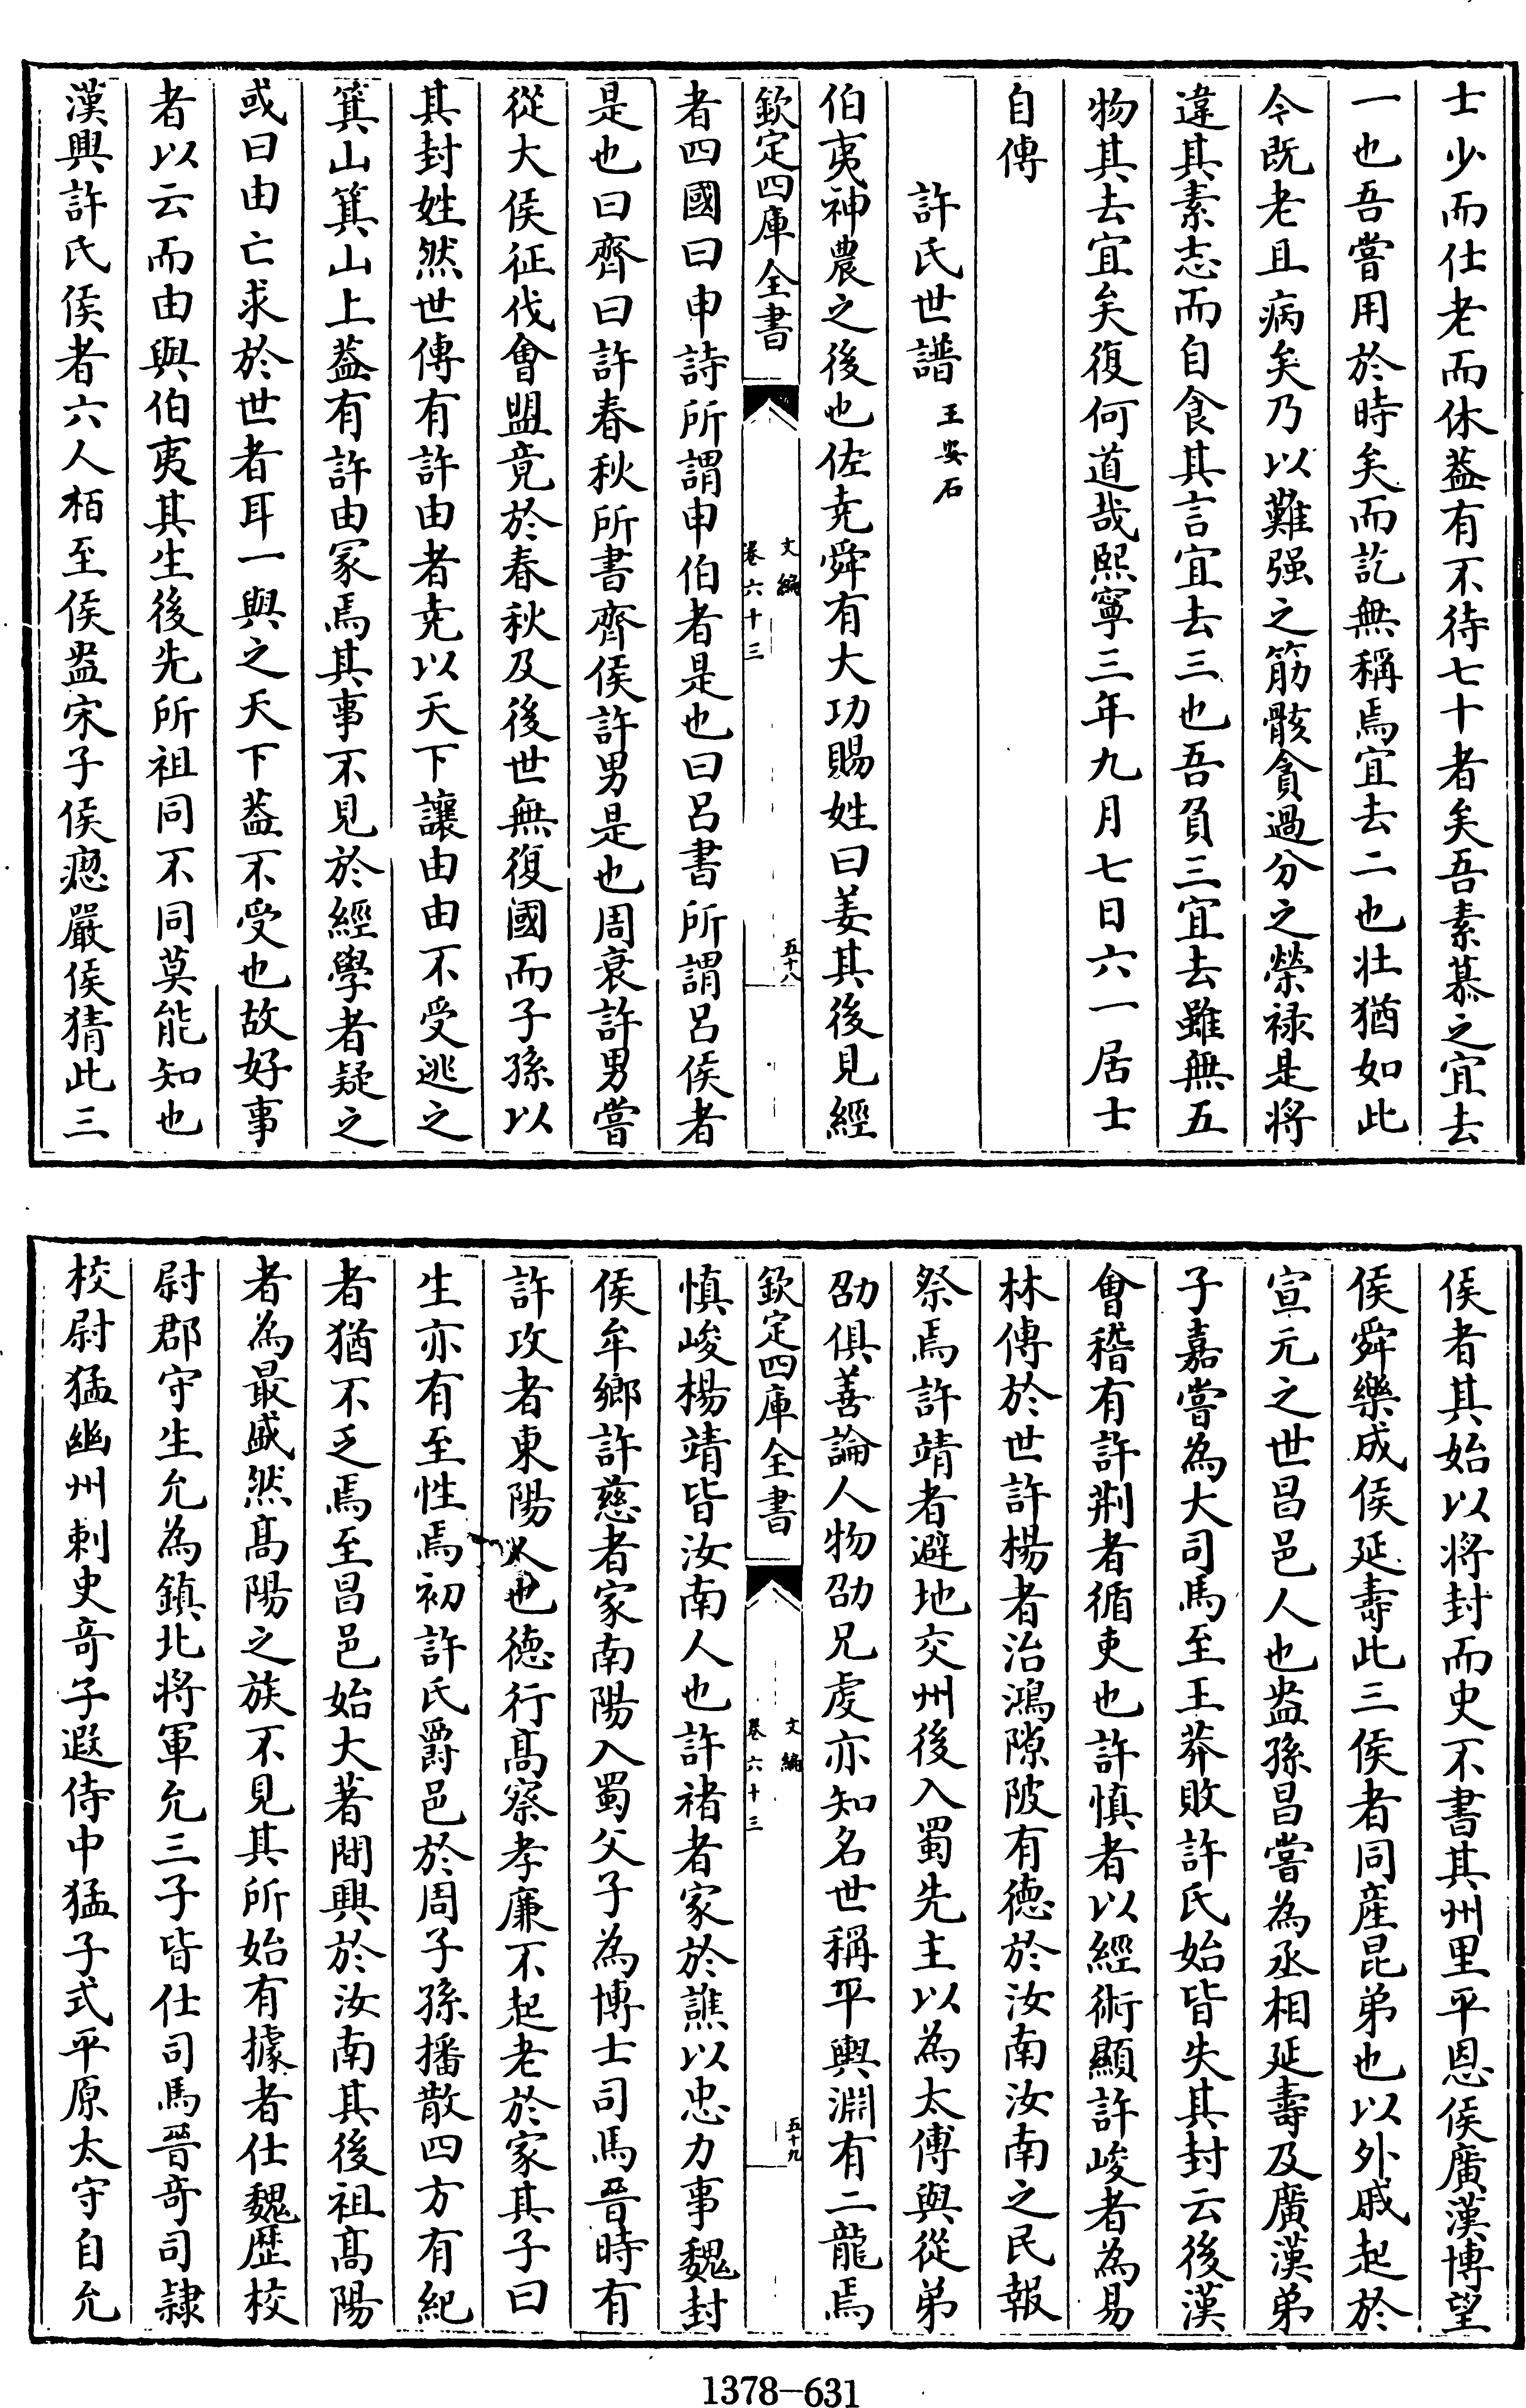 士少而仕老而休葢有不待七十者矣吾素慕之宜去
一也吾嘗用於時矣而訖無稱焉宜去二也壯猶如此
今既老且病矣乃以難强之筋骸貪過分之榮禄是將
違其素志而自食其言宜去三也吾負三宜去雖無五
物其去宜矣復何道哉熙寧三年九月七日六一居士
自傳
許氏世譜 王安石
伯夷神農之後也佐堯舜有大功賜姓曰姜其後見經
欽定四庫全書
文編
卷六十三
五十八
者四國曰申詩所謂申伯者是也曰呂書所謂呂侯者
是也曰齊曰許春秋所書齊侯許男是也周衰許男嘗
從大侯征伐會盟竟於春秋及後世無復國而子孫以
其封姓然世傳有許由者堯以天下讓由由不受逃之
箕山箕山上葢有許由冡焉其事不見於經學者疑之
或曰由亡求於世者耳一與之天下葢不受也故好事
者以云而由與伯夷其生後先所祖同不同莫能知也
漢興許氏侯者六人栢至侯盎宋子侯瘛嚴侯猜此三
侯者其始以將封而史不書其州里平恩侯廣漢博望
侯舜樂成侯延壽此三侯者同産昆弟也以外戚起於
宣元之世昌邑人也盎孫昌嘗為丞相延壽及廣漢弟
子嘉嘗為大司馬至王莽敗許氏始皆失其封云後漢
會稽有許荆者循吏也許慎者以經術顯許峻者為易
林傳於世許楊者治鴻隙陂有徳於汝南汝南之民報
祭焉許靖者避地交州後入蜀先主以為太傅與從弟
劭俱善論人物劭兄虔亦知名世稱平輿淵有二龍焉
欽定四庫全書
文編
卷六十三
五十九
慎峻楊靖皆汝南人也許褚者家於譙以忠力事魏封
侯牟鄉許慈者家南陽入蜀父子為博士司馬晉時有
許攻者東陽人也徳行髙察孝廉不起老於家其子曰
生亦有至性焉初許氏爵邑於周子孫播散四方有紀
者猶不乏焉至昌邑始大著間興於汝南其後祖髙陽
者為最盛然髙陽之族不見其所始有據者仕魏歴校
尉郡守生允為鎮北將軍允三子皆仕司馬晉竒司隷
校尉猛幽州刺史竒子遐侍中猛子式平原太守自允
1378-631